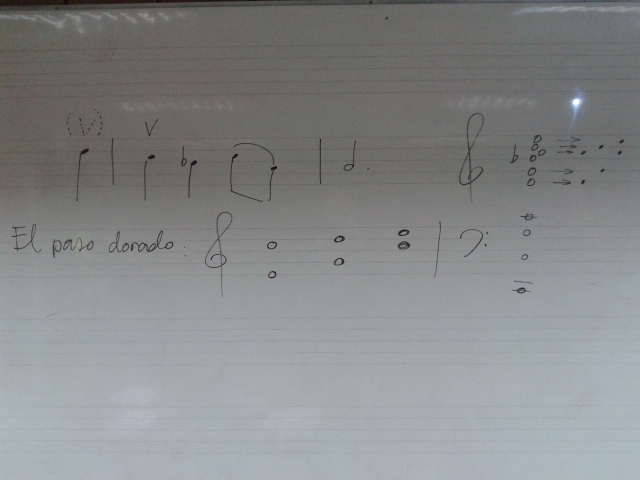 (V) V
El paso dorado: